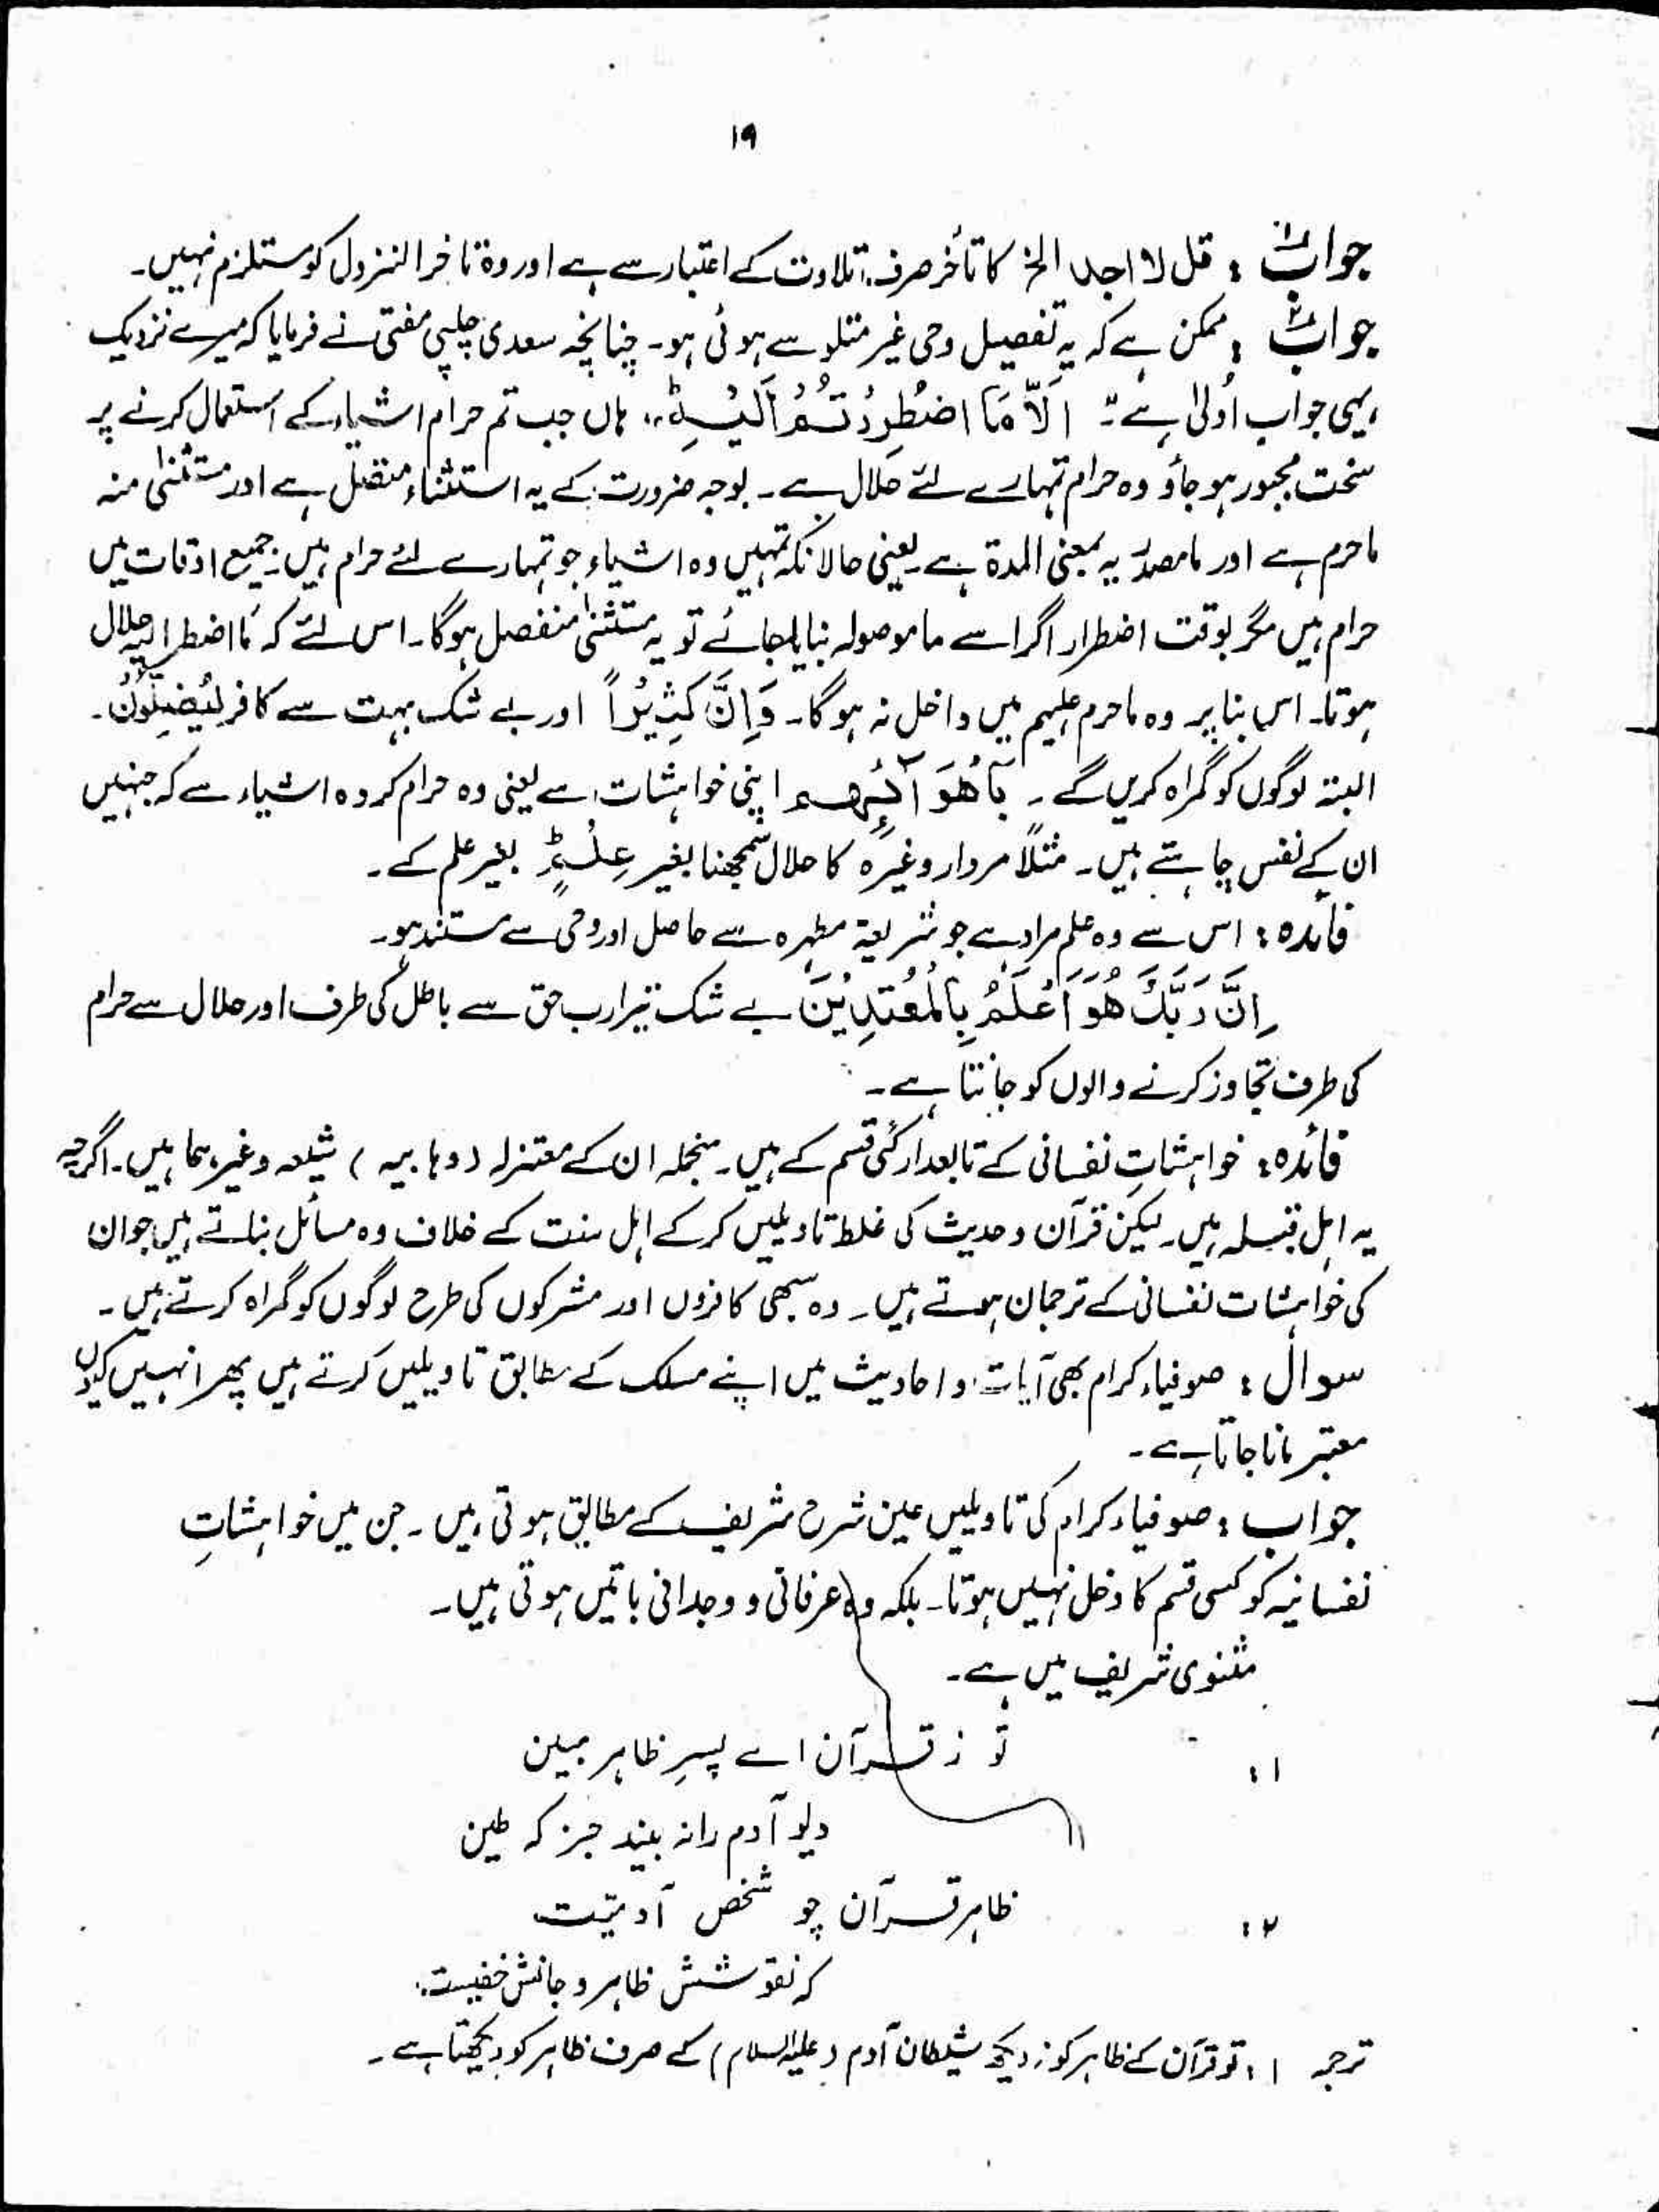 ۱۹
جواب۱ : قل لا اجد الخ کا تأخر صرف تلاوت کے اعتبار سے ہے اور وہ تاخر النزول کو مستلزم نہیں۔
جواب۲ : ممکن ہے کہ یہ تفصیل وحی غیر متلو سے ہوئی ہو۔ چنانچہ سعدی چلپی مفتی نے فرمایا کہ میرے نزدیک
یہی جواب اَولیٰ ہے : اِلَّا مَا اضْطُرِرْتُمْ اِلَيْهِ،، ہاں جب تم حرام اشیاء کے استعمال کرنے پر
سخت مجبور ہو جاؤ وہ حرام تمہارے لئے حلال ہے۔ بوجہ ضرورت کے یہ استثناء متصل ہے اور مستثنیٰ منہ
ماحرم ہے اور ما مصدریہ بمعنی المدة ہے یعنی حالانکہ تمہیں وہ اشیاء جو تمہارے لئے حرام ہیں جمیع اوقات میں
حرام ہیں مگر بوقت اضطرار اگر اسے ما موصولہ بنایا جائے تو یہ مستثنیٰ منفصل ہوگا۔ اس لئے کہ مَا اضطر الیہ حلال
ہوتا۔ اس بنا پر وہ ماحرم علیہم میں داخل نہ ہوگا۔ وَاِنَّ كَثِيْرًا اور بے شک بہت سے کافر لَيُضِلُّوْنَ۔
البتہ لوگوں کو گمراہ کریں گے۔ بِاَهْوَآئِهِمْ اپنی خواہشات سے یعنی وہ حرام کردہ اشیاء سے کہ جنہیں
ان کے نفس چاہتے ہیں۔ مثلاً مردار وغیرہ کا حلال سمجھنا بغیر عِلْمٍ بغیر علم کے۔
فائدہ : اس سے وہ علم مراد ہے جو شریعۃ مطہرہ سے حاصل اور وحی سے مستند ہو۔
اِنَّ رَبَّكَ هُوَ اَعْلَمُ بِالْمُعْتَدِيْنَ بے شک تیرا رب حق سے باطل کی طرف اور حلال سے حرام
کی طرف تجاوز کرنے والوں کو جانتا ہے۔
فائدہ : خواہشاتِ نفسانی کے تابعدار کئی قسم کے ہیں۔ منجملہ ان کے معتزلہ (وہابیہ) شیعہ وغیرہما ہیں۔ اگرچہ
یہ اہل قبلہ ہیں۔ لیکن قرآن و حدیث کی غلط تاویلیں کرکے اہل سنت کے خلاف وہ مسائل بناتے ہیں جو ان
کی خواہشات نفسانی کے ترجمان ہوتے ہیں۔ وہ سبھی کافروں اور مشرکوں کی طرح لوگوں کو گمراہ کرتے ہیں۔
سوال : صوفیاء کرام بھی آیات و احادیث میں اپنے مسلک کے مطابق تاویلیں کرتے ہیں پھر انہیں کیوں
معتبر مانا جاتا ہے۔
جواب : صوفیاء کرام کی تاویلیں عین شرح شریف کے مطابق ہوتی ہیں۔ جن میں خواہشاتِ
نفسانیہ کو کسی قسم کا دخل نہیں ہوتا۔ بلکہ وہ عرفانی و وجدانی باتیں ہوتی ہیں۔
مثنوی شریف میں ہے۔
۱: تو ز قرآن اے پسرِ ظاہر مبین
دیو آدم را نہ بیند جز کہ طین
۲: ظاہر قرآن چو شخص آدمیّت
کہ نقوشش ظاہر و جانش خفیست
ترجمہ ۱: تو قرآن کے ظاہر کو نہ دیکھ شیطان آدم (علیہ السلام) کے صرف ظاہر کو دیکھتا ہے۔